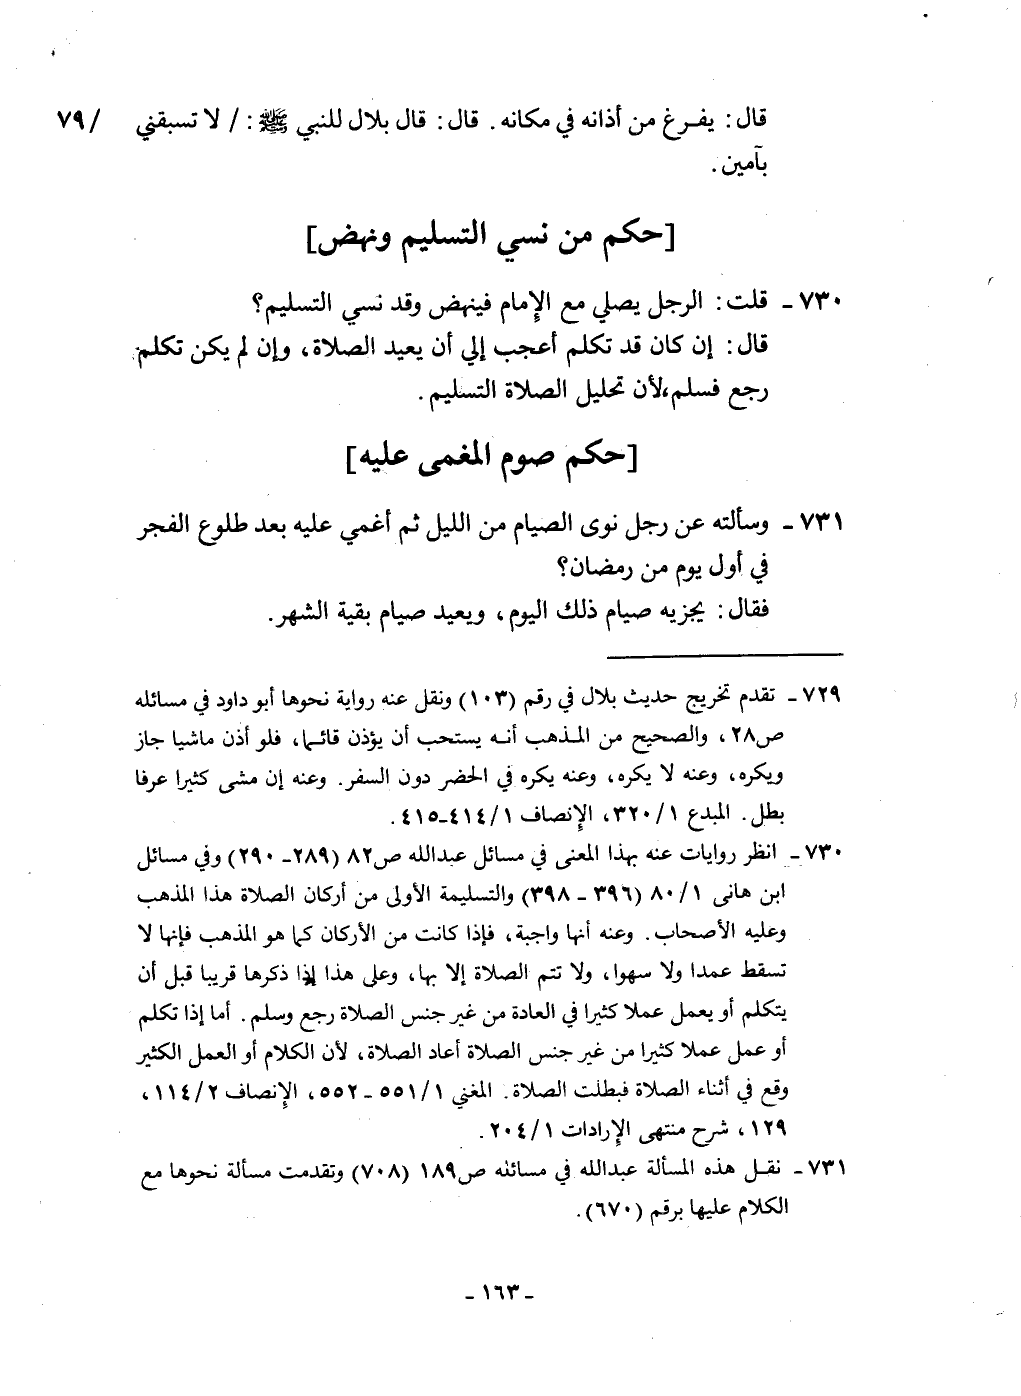 قال: يفرغ من أذانه في مكانه. قال: قال بلال للنبي ﷺ: / لا تسبقني / ٧٩
بآمين.
[حكم من نسي التسليم ونهض]
٧٣٠ ـ قلت: الرجل يصلي مع الإمام فينهض وقد نسي التسليم؟
قال: إن كان قد تكلم أعجب إلي أن يعيد الصلاة، وإن لم يكن تكلم
رجع فسلم، لأن تحليل الصلاة التسليم.
[حكم صوم المغمى عليه]
٧٣١ ـ وسألته عن رجل نوى الصيام من الليل ثم أغمي عليه بعد طلوع الفجر
في أول يوم من رمضان؟
فقال: يجزيه صيام ذلك اليوم، ويعيد صيام بقية الشهر.
٧٢٩ ـ تقدم تخريج حديث بلال في رقم (١٠٣) ونقل عنه رواية نحوها أبو داود في مسائله
ص٢٨، والصحيح من المذهب أنه يستحب أن يؤذن قائما، فلو أذن ماشيا جاز
ويكره، وعنه لا يكره، وعنه يكره في الحضر دون السفر. وعنه إن مشى كثيرا عرفا
بطل. المبدع ١/٣٢٠، الإنصاف ١/٤١٤ـ٤١٥.
٧٣٠ ـ انظر روايات عنه بهذا المعنى في مسائل عبدالله ص٨٢ (٢٨٩ـ ٢٩٠) وفي مسائل
ابن هانى ١/٨٠ (٣٩٦ ـ ٣٩٨) والتسليمة الأولى من أركان الصلاة هذا المذهب
وعليه الأصحاب. وعنه أنها واجبة، فإذا كانت من الأركان كما هو المذهب فإنها لا
تسقط عمدا ولا سهوا، ولا تتم الصلاة إلا بها، وعلى هذا إذا ذكرها قريبا قبل أن
يتكلم أو يعمل عملا كثيرا في العادة من غير جنس الصلاة رجع وسلم. أما إذا تكلم
أو عمل عملا كثيرا من غير جنس الصلاة أعاد الصلاة، لأن الكلام أو العمل الكثير
وقع في أثناء الصلاة فبطلت الصلاة. المغني ١/٥٥١ ـ ٥٥٢، الإنصاف ٢/١١٤،
١٢٩، شرح منتهى الإرادات ١/٢٠٤.
٧٣١ ـ نقل هذه المسألة عبدالله في مسائله ص١٨٩ (٧٠٨) وتقدمت مسألة نحوها مع
الكلام عليها برقم (٦٧٠).
ـ ١٦٣ ـ